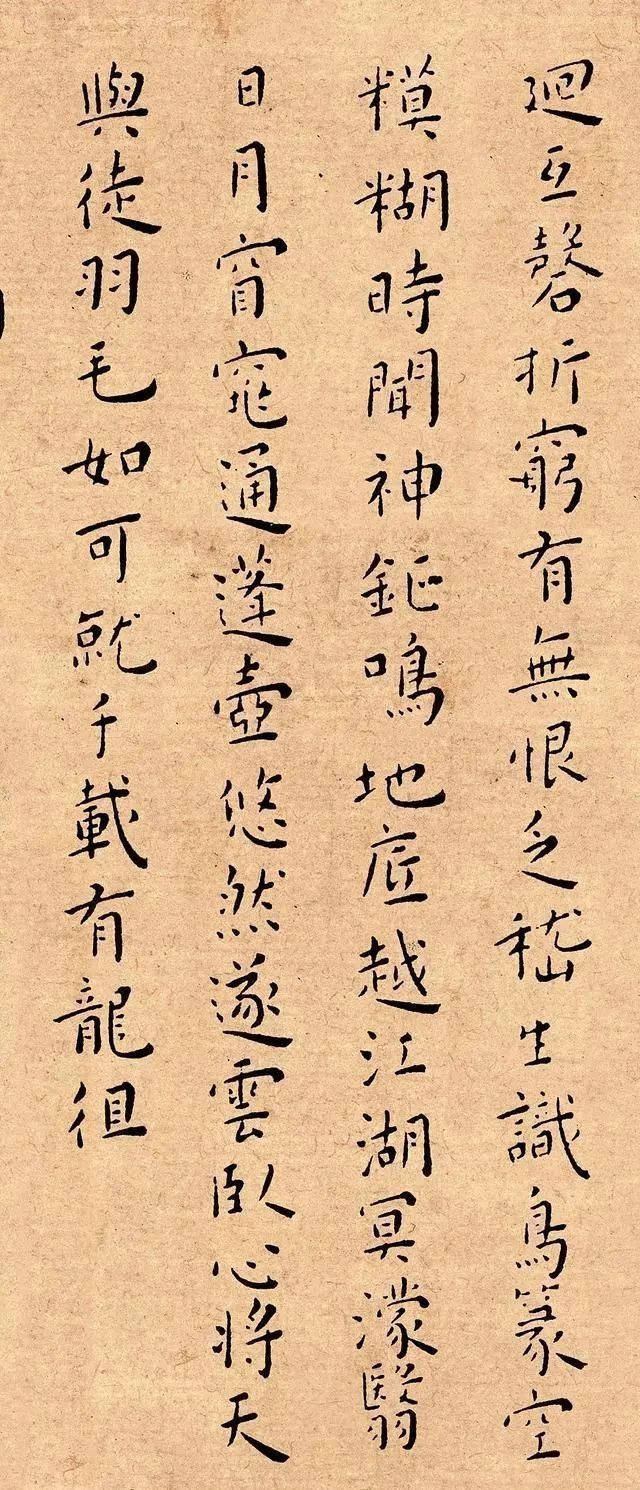 廻互磬折窮有無恨乏嵇生識鳥篆空
糢糊時聞神鉦鳴地底越江湖冥濛翳
日月窅窕通蓬壺悠然遂雲臥心將天
與徒羽毛如可就千載有龍徂